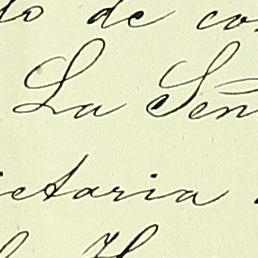 do de co
La Señ
ictaria